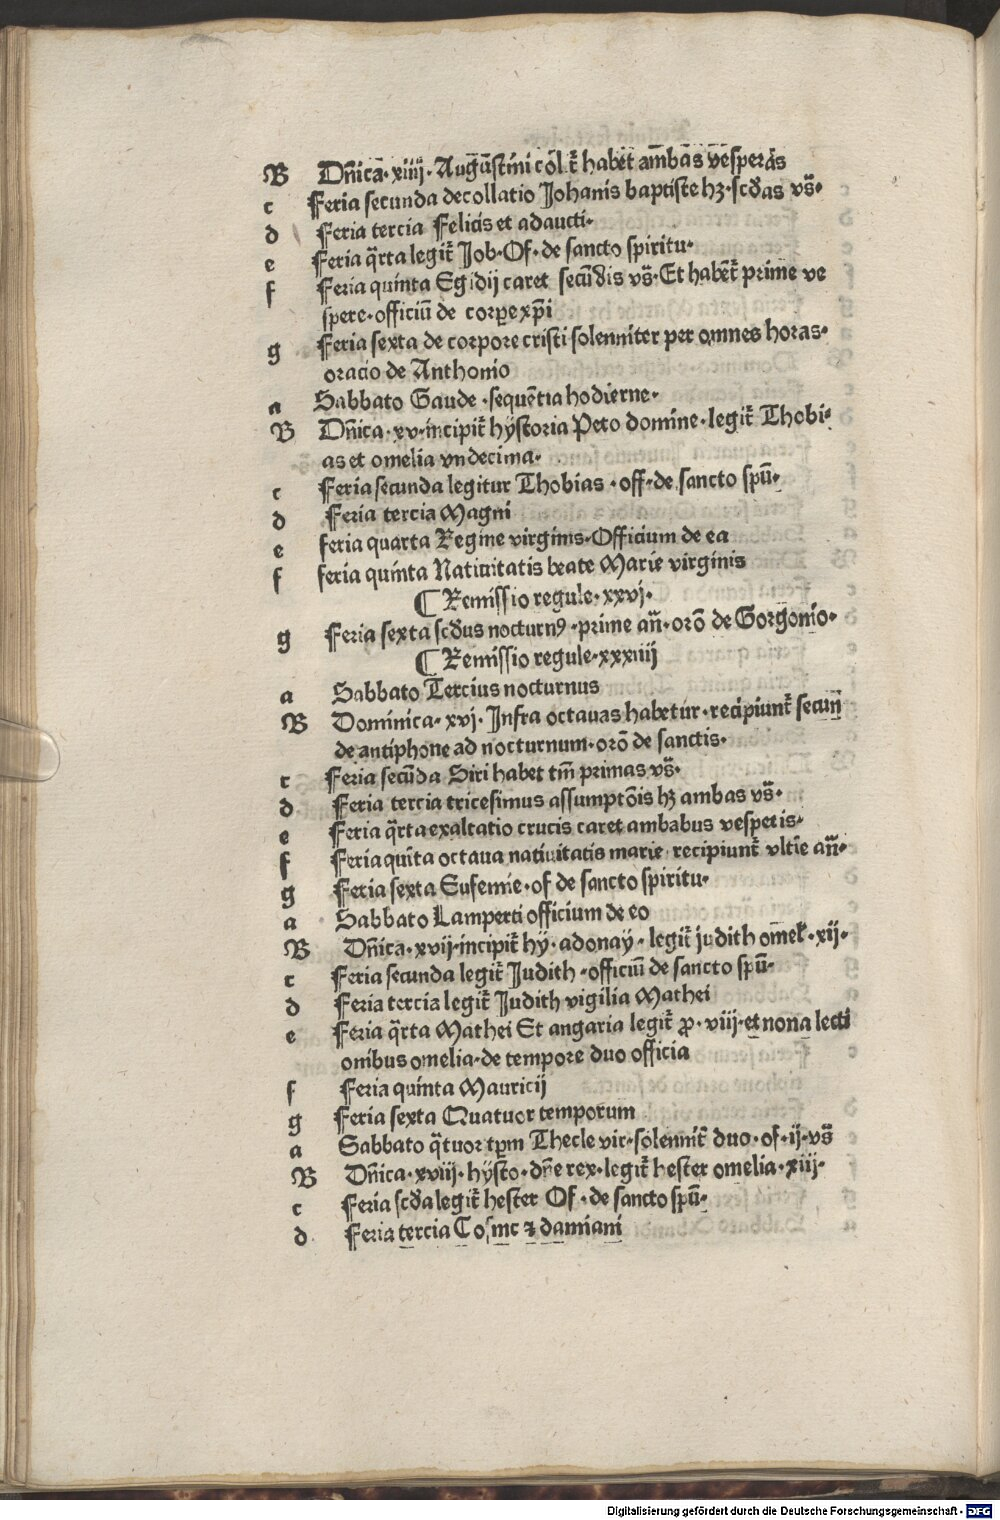 B Dn̄ica· xiiij · Augustini cōl t̄ habet ambas vesperas
c Feria secunda decollatio Johanis baptiste hꝫ·scd̄as vs̄·
d Feria tercia Felicis et adaucti·
e Feria q̄rta legit̄ Job·Of·de sancto spiritu·
f Feria quinta Egidij caret secūdis vs̄·Et habēt̄ prime ve
spere·officiū de corꝑe xp̄i
g Feria sexta de corpore cristi solenniter per omnes horas·
oracio de Anthonio
a Sabbato Gaude ·sequētia hodierne·
B Dn̄ica·xv·incipit̄ hystoria Peto domine·legit̄ Thobi·
as et omelia vndecima·
c Feria secunda legitur Thobias ·off·de sancto spū·
d Feria tercia Magni
e feria quarta Regine virginis·Officium de ea
f feria quinta Natiuitatis beate Marie virginis
¶ Remissio regule·xxvj·
g Feria sexta scd̄us nocturnꝰ·prime an̄·orō de Gorgonio·
¶ Remissio regule·xxxiiij
a Sabbato Tercius nocturnus
B Dominica·xvj·Infra octauas habetur·recipiunt̄ secun
de antiphone ad nocturnum·orō de sanctis·
c Feria secūda Siri habet tm̄ primas vs̄·
d Feria tercia tricesimus assumptōis hꝫ ambas vs̄·
e Feria q̄rta exaltatio crucis caret ambabus vesperis·
f Feria quīta octaua natiuitatis marie recipiunt̄ vltīe an̄·
g Feria sexta Eufemie·of de sancto spiritu·
a Sabbato Lamperti officium de eo
B Dn̄ica·xvij·incipit̄ hy·adonay·legit̄ judith omel·xij·
c Feria secunda legit̄ Judith ·officiū de sancto spū·
d Feria tercia legit̄ Judith vigilia Mathei
e Feria q̄rta Mathei Et angaria legit̄ ꝓ·viij·et nona lecti
onibus omelia·de tempore duo officia
f Feria quinta Mauricij
g Feria sexta Quatuor temporum
a Sabbato q̄tuor tꝑm Thecle vir·solennit̄ duo·of·ij·vs̄
B Dn̄ica·xviij·hysto·dn̄e rex·legit̄ hester omelia·xiij·
c Feria scd̄a legit̄ hester Of·de sancto spū·
d Feria tercia Cosme ⁊ damiani
Digitalisierung gefördert durch die Deutsche Forschungsgemeinschaft - DFG